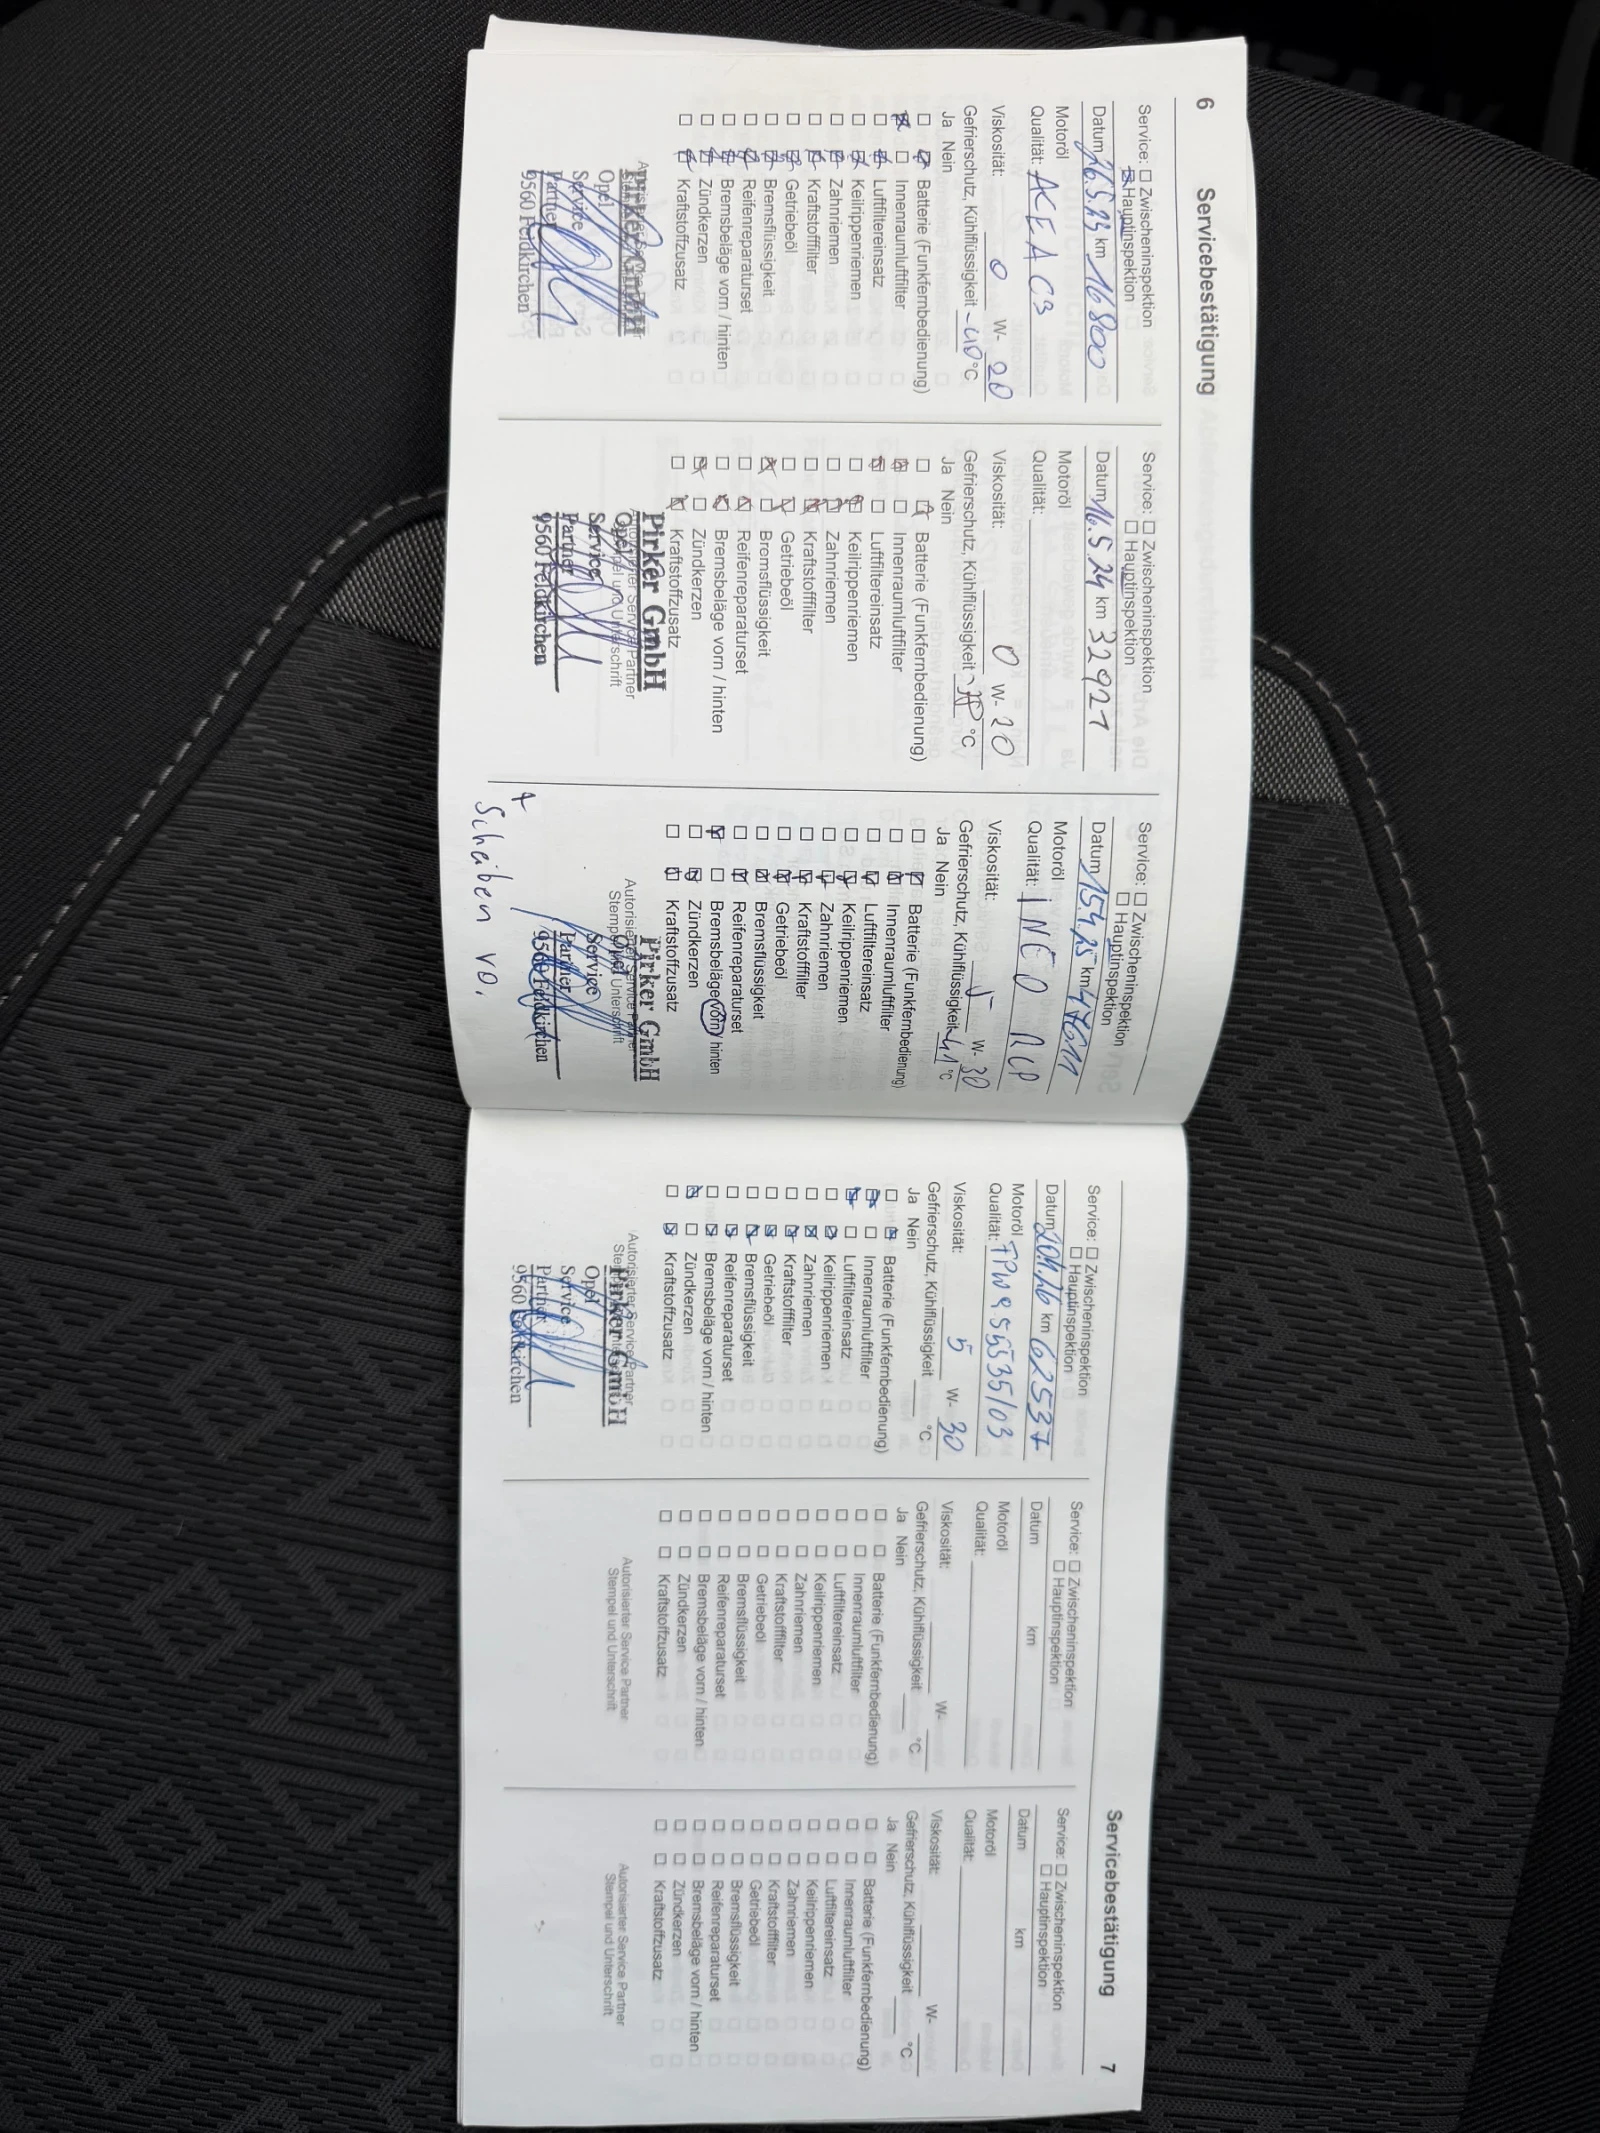 6 Servicebestätigung
Service: ☐ Zwischeninspektion
☒ Hauptinspektion
Datum 26.5.23 km 16800
Motoröl
Qualität: ACEA C3
Viskosität: 0 W- 20
Gefrierschutz, Kühlflüssigkeit -40 °C
Ja Nein
☐ ☒ Batterie (Funkfernbedienung)
☒ ☐ Innenraumluftfilter
☐ ☒ Luftfiltereinsatz
☐ ☒ Keilrippenriemen
☐ ☒ Zahnriemen
☐ ☒ Kraftstofffilter
☐ ☒ Getriebeöl
☐ ☒ Bremsflüssigkeit
☐ ☒ Reifenreparaturset
☐ ☒ Bremsbeläge vorn / hinten
☐ ☒ Zündkerzen
☐ ☒ Kraftstoffzusatz
Pirker GmbH
Opel
Service
Partner
9560 Feldkirchen
Service: ☐ Zwischeninspektion
☐ Hauptinspektion
Datum 16.5.24 km 32921
Motoröl
Qualität:
Viskosität: 0 W- 20
Gefrierschutz, Kühlflüssigkeit °C
Ja Nein
☐ ☒ Batterie (Funkfernbedienung)
☒ ☐ Innenraumluftfilter
☒ ☐ Luftfiltereinsatz
☐ ☒ Keilrippenriemen
☐ ☒ Zahnriemen
☐ ☒ Kraftstofffilter
☐ ☒ Getriebeöl
☒ ☐ Bremsflüssigkeit
☐ ☒ Reifenreparaturset
☐ ☒ Bremsbeläge vorn / hinten
☒ ☐ Zündkerzen
☐ ☒ Kraftstoffzusatz
Autorisierter Service Partner
Stempel und Unterschrift
Pirker GmbH
Opel
Service
Partner
9560 Feldkirchen
Service: ☐ Zwischeninspektion
☐ Hauptinspektion
Datum 15.4.25 km 47611
Motoröl
Qualität: INEO RCP
Viskosität: 5 W- 30
Gefrierschutz, Kühlflüssigkeit -41 °C
Ja Nein
☐ ☒ Batterie (Funkfernbedienung)
☐ ☒ Innenraumluftfilter
☐ ☒ Luftfiltereinsatz
☐ ☒ Keilrippenriemen
☐ ☒ Zahnriemen
☐ ☒ Kraftstofffilter
☐ ☒ Getriebeöl
☐ ☒ Bremsflüssigkeit
☐ ☒ Reifenreparaturset
☒ ☐ Bremsbeläge vorn / hinten
☐ ☒ Zündkerzen
☐ ☒ Kraftstoffzusatz
Autorisierter Service Partner
Stempel und Unterschrift
Pirker GmbH
Opel
Service
Partner
9560 Feldkirchen
+
Scheiben vo.
Servicebestätigung 7
Service: ☐ Zwischeninspektion
☐ Hauptinspektion
Datum 20.4.26 km 62537
Motoröl
Qualität: FPW9.55535/03
Viskosität: 5 W- 30
Gefrierschutz, Kühlflüssigkeit °C
Ja Nein
☐ ☒ Batterie (Funkfernbedienung)
☒ ☐ Innenraumluftfilter
☒ ☐ Luftfiltereinsatz
☐ ☒ Keilrippenriemen
☐ ☒ Zahnriemen
☐ ☒ Kraftstofffilter
☐ ☒ Getriebeöl
☐ ☒ Bremsflüssigkeit
☐ ☒ Reifenreparaturset
☐ ☒ Bremsbeläge vorn / hinten
☒ ☐ Zündkerzen
☐ ☒ Kraftstoffzusatz
Autorisierter Service Partner
Pirker GmbH
Opel
Service
Partner
9560 Feldkirchen
Service: ☐ Zwischeninspektion
☐ Hauptinspektion
Datum km
Motoröl
Qualität:
Viskosität: W-
Gefrierschutz, Kühlflüssigkeit °C
Ja Nein
☐ ☐ Batterie (Funkfernbedienung)
☐ ☐ Innenraumluftfilter
☐ ☐ Luftfiltereinsatz
☐ ☐ Keilrippenriemen
☐ ☐ Zahnriemen
☐ ☐ Kraftstofffilter
☐ ☐ Getriebeöl
☐ ☐ Bremsflüssigkeit
☐ ☐ Reifenreparaturset
☐ ☐ Bremsbeläge vorn / hinten
☐ ☐ Zündkerzen
☐ ☐ Kraftstoffzusatz
Autorisierter Service Partner
Stempel und Unterschrift
Service: ☐ Zwischeninspektion
☐ Hauptinspektion
Datum km
Motoröl
Qualität:
Viskosität: W-
Gefrierschutz, Kühlflüssigkeit °C
Ja Nein
☐ ☐ Batterie (Funkfernbedienung)
☐ ☐ Innenraumluftfilter
☐ ☐ Luftfiltereinsatz
☐ ☐ Keilrippenriemen
☐ ☐ Zahnriemen
☐ ☐ Kraftstofffilter
☐ ☐ Getriebeöl
☐ ☐ Bremsflüssigkeit
☐ ☐ Reifenreparaturset
☐ ☐ Bremsbeläge vorn / hinten
☐ ☐ Zündkerzen
☐ ☐ Kraftstoffzusatz
Autorisierter Service Partner
Stempel und Unterschrift